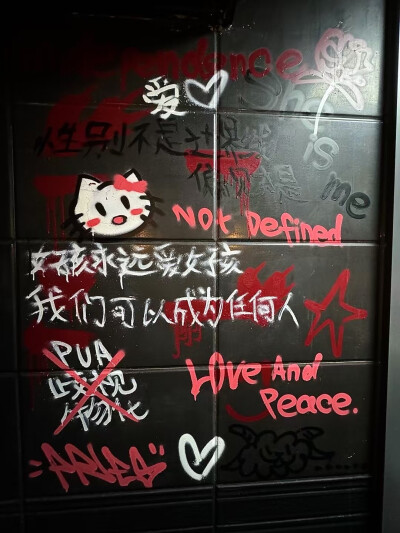 Independence
爱
She
性别不是边界线
is
偏见才是
me
Not Defined
女孩永远爱女孩
我们可以成为任何人
PUA
歧视
物化
Love And
Peace.